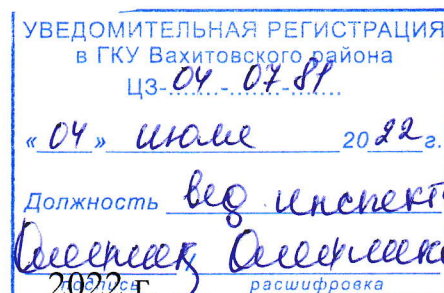 УВЕДОМИТЕЛЬНАЯ РЕГИСТРАЦИЯ
в ГКУ Вахитовского района
ЦЗ-04-07-81
«04» июля 2022 г.
Должность вед инспект
подпись расшифровка
2022 г